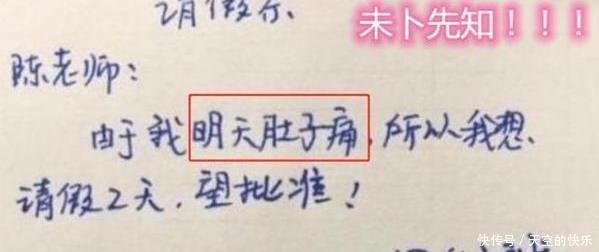 请假条
未卜先知！！！
陈老师：
由于我明天肚子痛，所以我想
请假2天，望批准！
快传号/天空的快乐